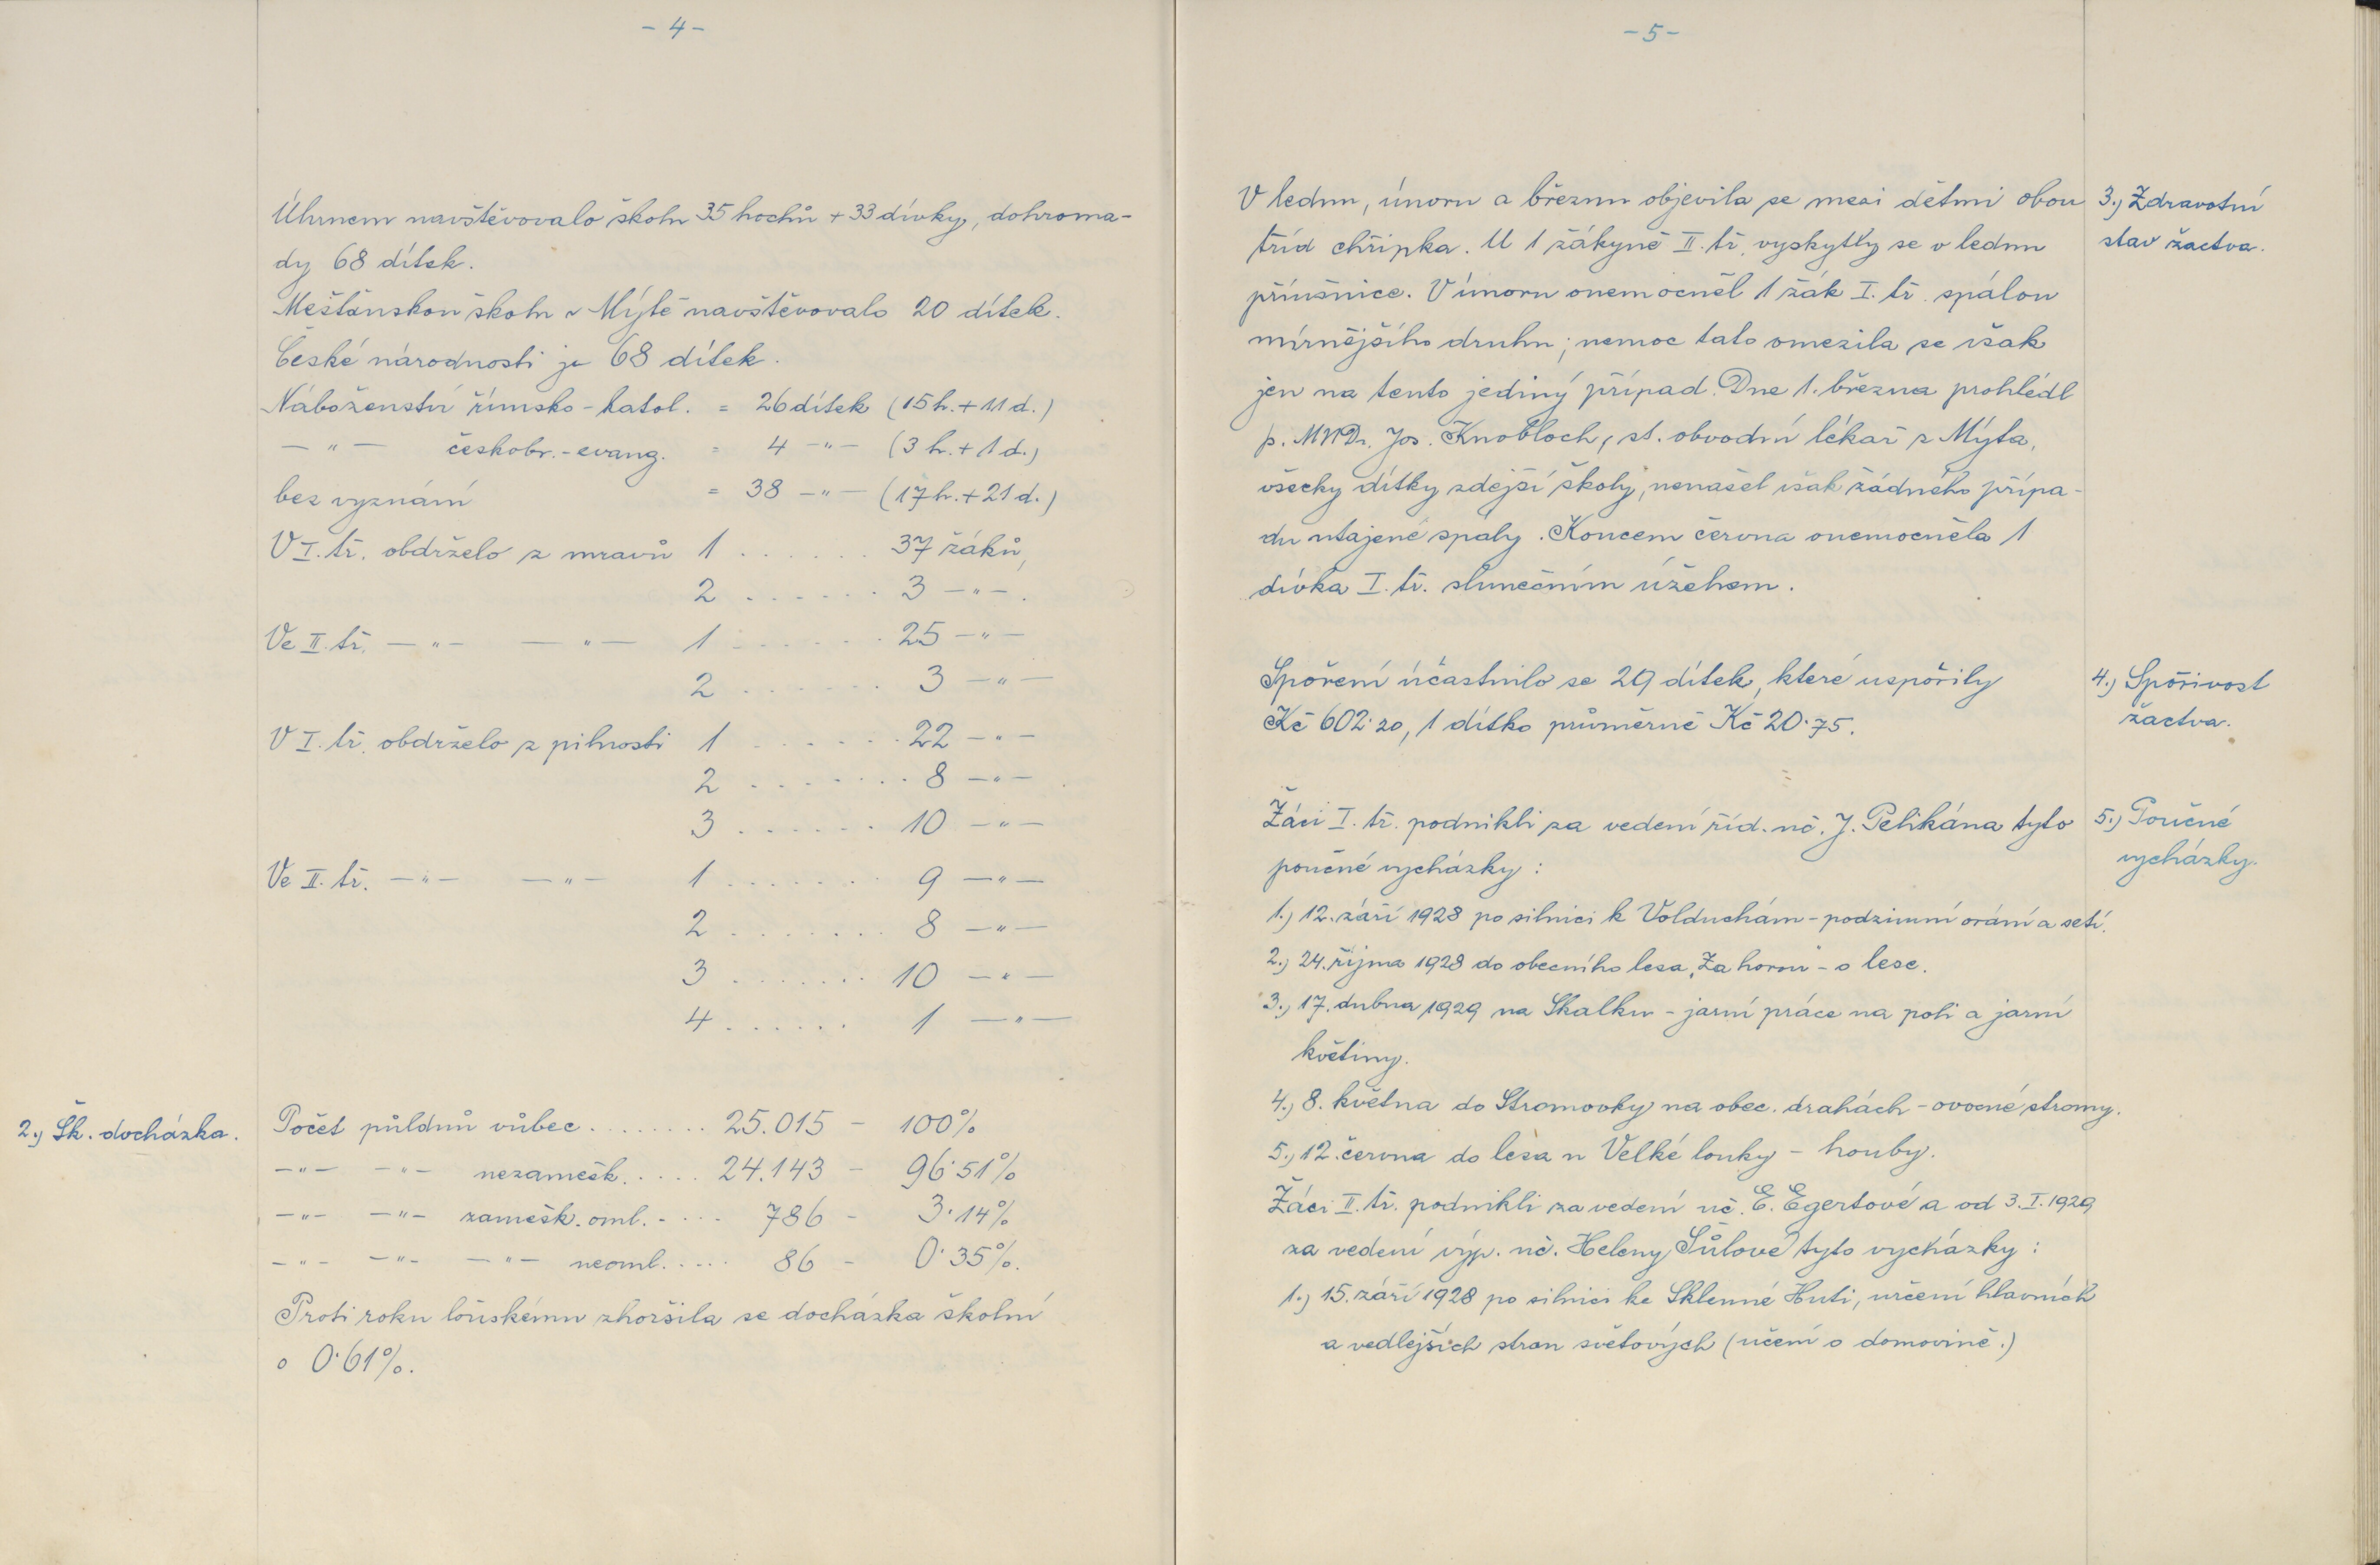 - 4 -
Úhrnem navštěvovalo školu 35 hochů + 33 dívky, dohroma-
dy 68 dítek.
Měšťanskou školu v Mýtě navštěvovalo 20 dítek.
České národnosti je 68 dítek.
Náboženství římsko-katol. = 26 dítek (15 h. + 11 d.)
— " — českobr.-evang. = 4 — " — (3 h. + 1 d.)
bez vyznání = 38 — " — (17 h. + 21 d.)
V I. tř. obdrželo z mravů 1 . . . . . . 37 žáků,
2 . . . . . . 3 — " — .
Ve II. tř. — " — — " — 1 . . . . . . 25 — " —
2 . . . . . . . 3 — " —
V I. tř. obdrželo z pilnosti 1 . . . . . . 22 — " —
2 . . . . . . . . 8 — " —
3 . . . . . . 10 — " —
Ve II. tř. — " — — " — 1 . . . . . . . 9 — " —
2 . . . . . . . 8 — " —
3 . . . . . . . 10 — " —
4 . . . . . . 1 — " —
2.) Šk. docházka.
Počet půldnů vůbec . . . . . . . . 25.015 - 100%
— " — — " — nezamešk. . . . . 24.143 - 96·51%
— " — — " — zamešk. oml. - . . . 786 - 3·14%
— " — — " — — " — neoml. . . . . 86 - 0·35%.
Proti roku loňskému zhoršila se docházka školní
o 0·61%.
- 5 -
V lednu, únoru a březnu objevila se mezi dětmi obou
tříd chřipka. U 1 žákyně II. tř. vyskytly se v lednu
příušnice. V únoru onemocněl 1 žák I. tř. spálou
mírnějšího druhu; nemoc tato omezila se však
jen na tento jediný případ. Dne 1. března prohlédl
p. MUDr. Jos. Knobloch, st. obvodní lékař z Mýta,
všecky dítky zdejší školy, nenašel však žádného přípa-
du utajené spály. Koncem června onemocněla 1
dívka I. tř. slunečním úžehem.
3.) Zdravotní
stav žactva.
Spoření účastnilo se 29 dítek, které uspořily
Kč 602·20, 1 dítko průměrně Kč 20·75.
4.) Spořivost
žactva.
Žáci I. tř. podnikli za vedení říd. uč. J. Pelikána tyto
poučné vycházky:
5.) Poučné
vycházky.
1.) 12. září 1928 po silnici k Volduchám - podzimní orání a setí.
2.) 24. října 1928 do obecního lesa „Za horou" - o lese.
3.) 17. dubna 1929 na Skalku - jarní práce na poli a jarní
květiny.
4.) 8. května do Stromovky na obec. drahách - ovocné stromy.
5.) 12. června do lesa u Velké louky - houby.
Žáci II. tř. podnikli za vedení uč. E. Egertové a od 3. I. 1929
za vedení výp. uč. Heleny Šůlové tyto vycházky:
1.) 15. září 1928 po silnici ke Sklenné Huti, určení hlavních
a vedlejších stran světových (učení o domovině.)